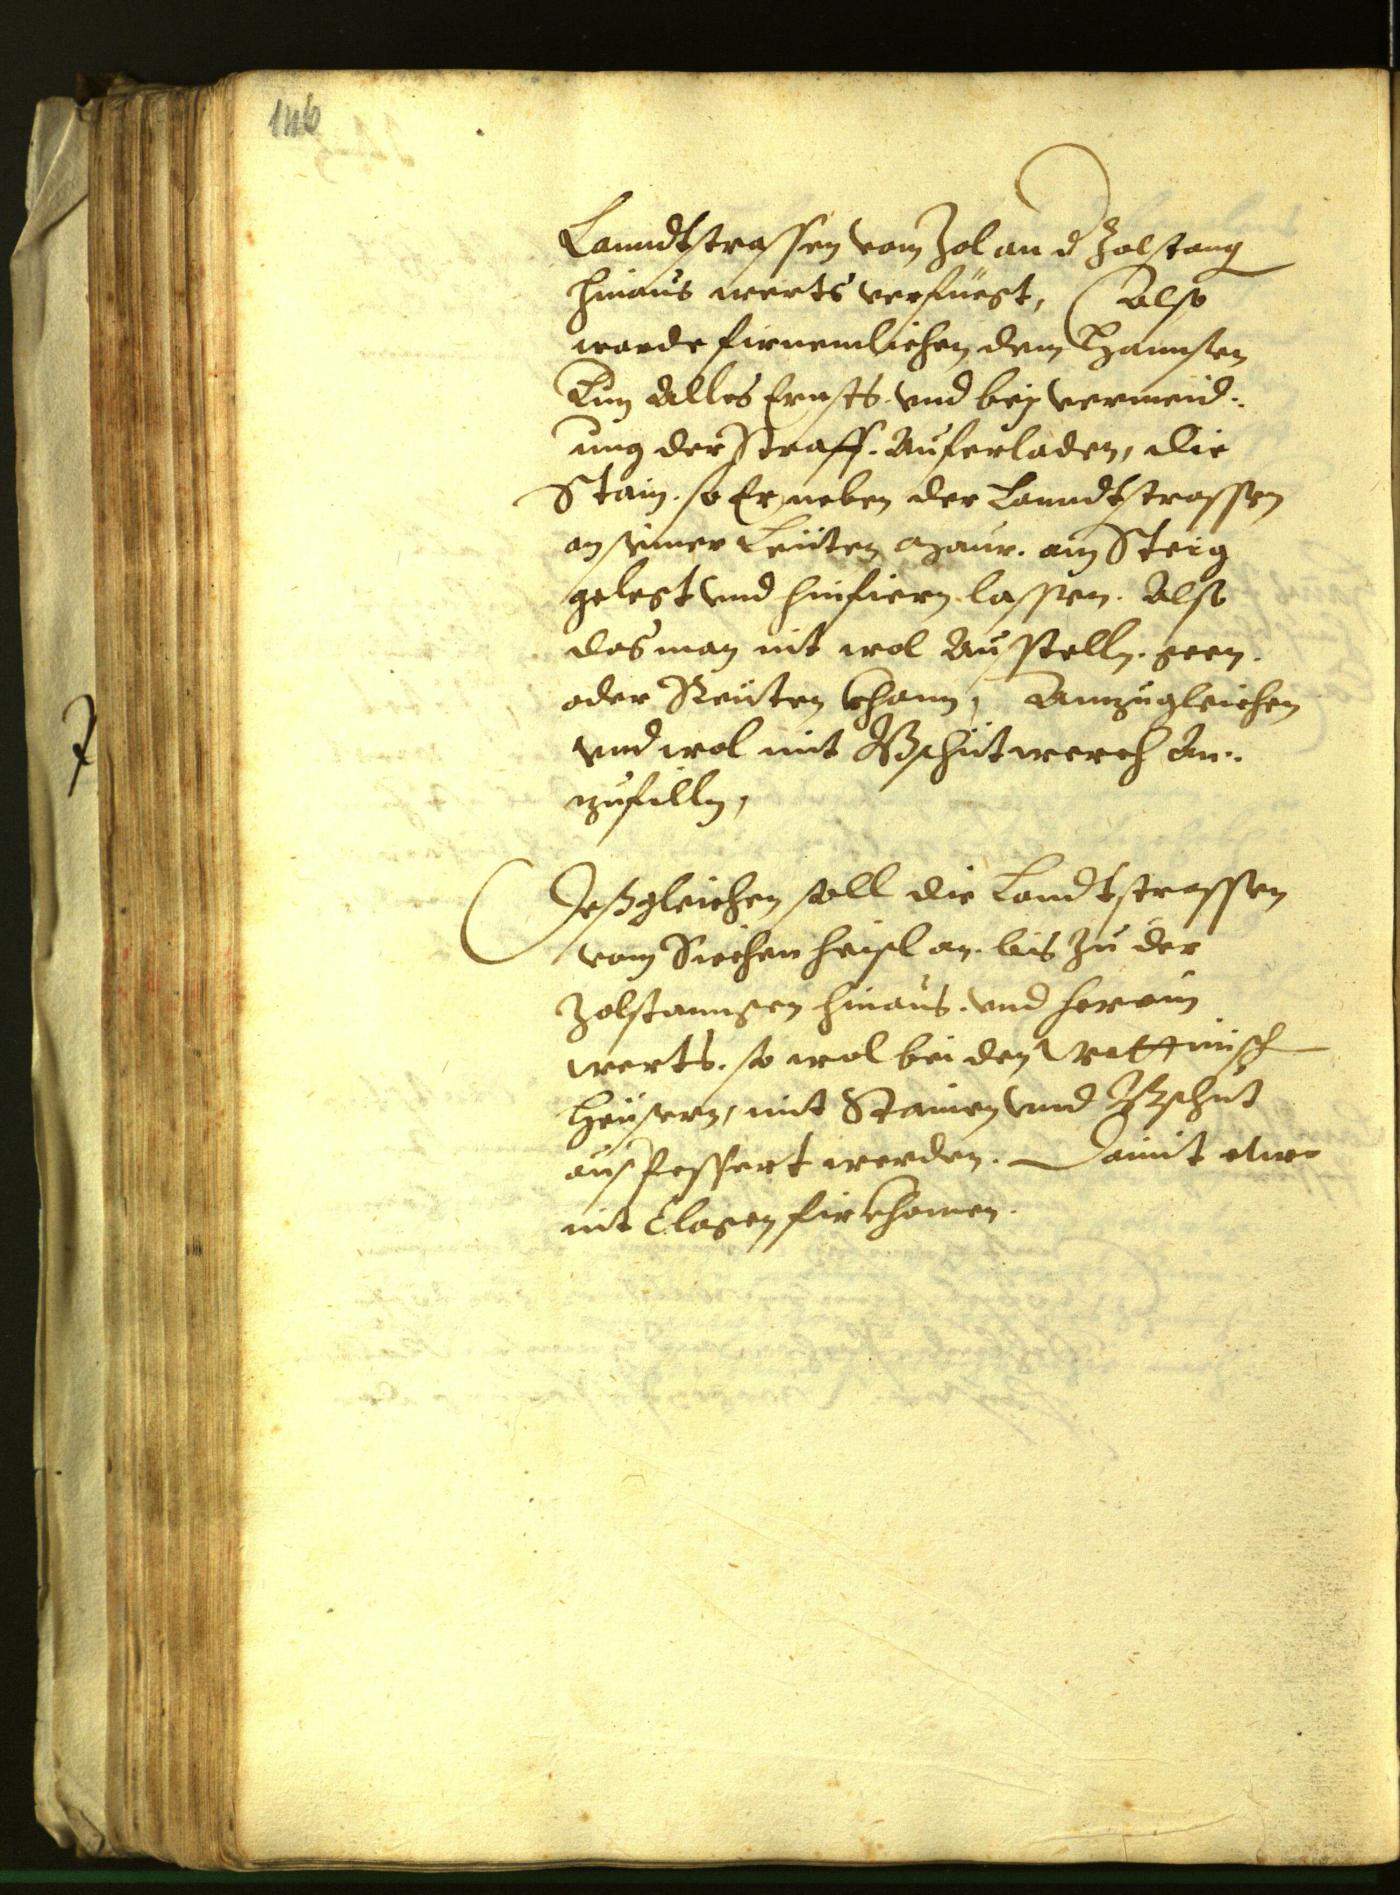 146
Lanndtstrassen vom Zol an d Zolstang
hinaus werts verfüegt, Also
warde firnemlichen dem Hannsen
Lun Alles Ernsts. vnd bej vermeid:
ung der Straff. Auferladen, die
Stain. so Er neben der Lanndtstrassen
an seiner Leüten Maur. am Steig
gelegt vnd hinfiern lassen. Also
das man nit wol Austelln. geen.
oder Reüten khann, Anzugleichen
vnd wol mit Bschütwerch An:
zufilln,
Deßgleichen soll die Landtstrassen
vom Siechenheisl an. bis zu der
Zolstanngen hinaus. vnd herein
werts. so wol bei den
Heüsern, mit Stainen vnd Bschüt
auspessert werden. Damit etwo
nit Clagen firkhomen.